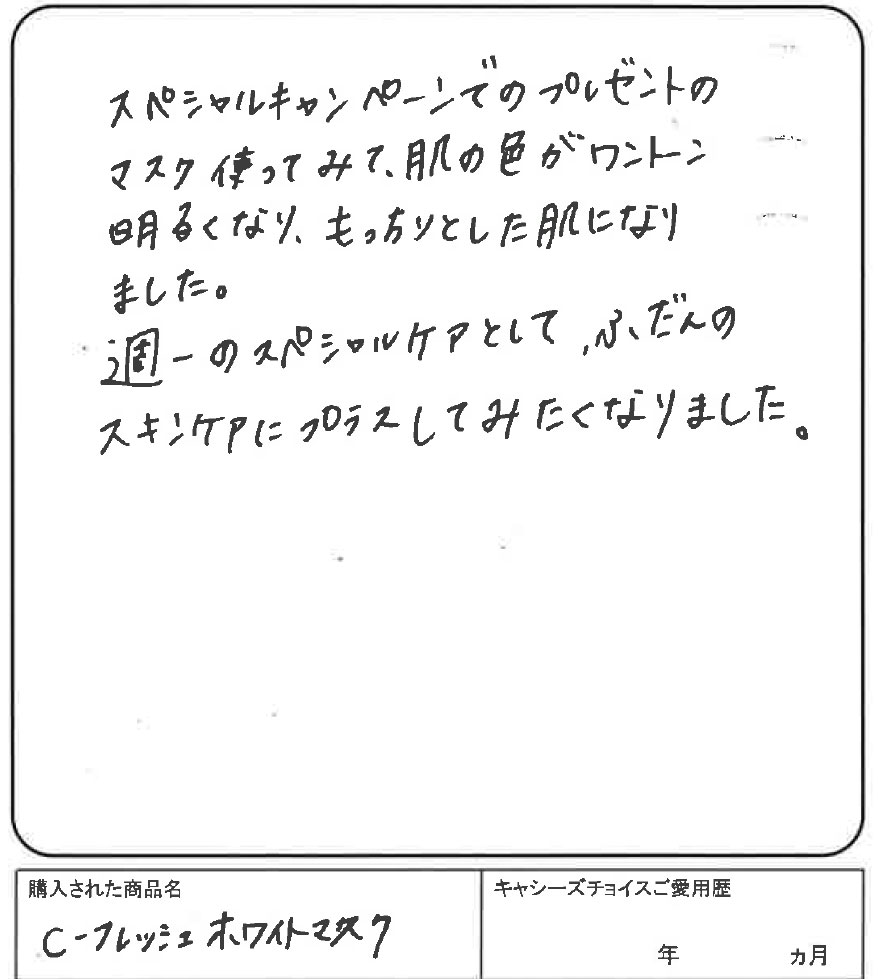 スペシャルキャンペーンでのプレゼントの
マスク使ってみて、肌の色がワントーン
明るくなり、もっちりとした肌になり
ました。
週一のスペシャルケアとして、ふだんの
スキンケアにプラスしてみたくなりました。
購入された商品名
C-フレッシュホワイトマスク
キャシーズチョイスご愛用歴
年 ヵ月